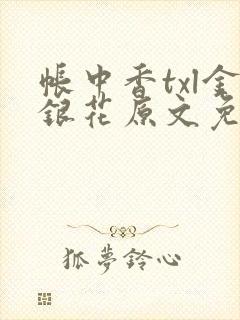 帳中香txl金
銀花原文免
狐夢鈴心